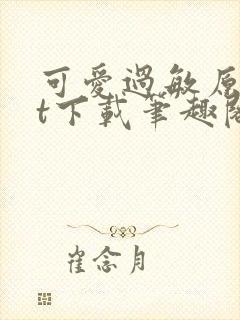 可愛過敏原
t下載筆趣閣
崔念月